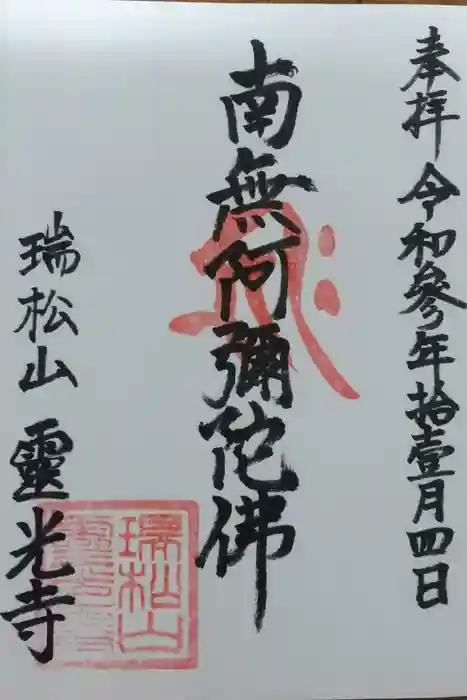 奉拝 令和参年拾壹月四日
南無阿彌陀佛
瑞松山 靈光寺
瑞松山